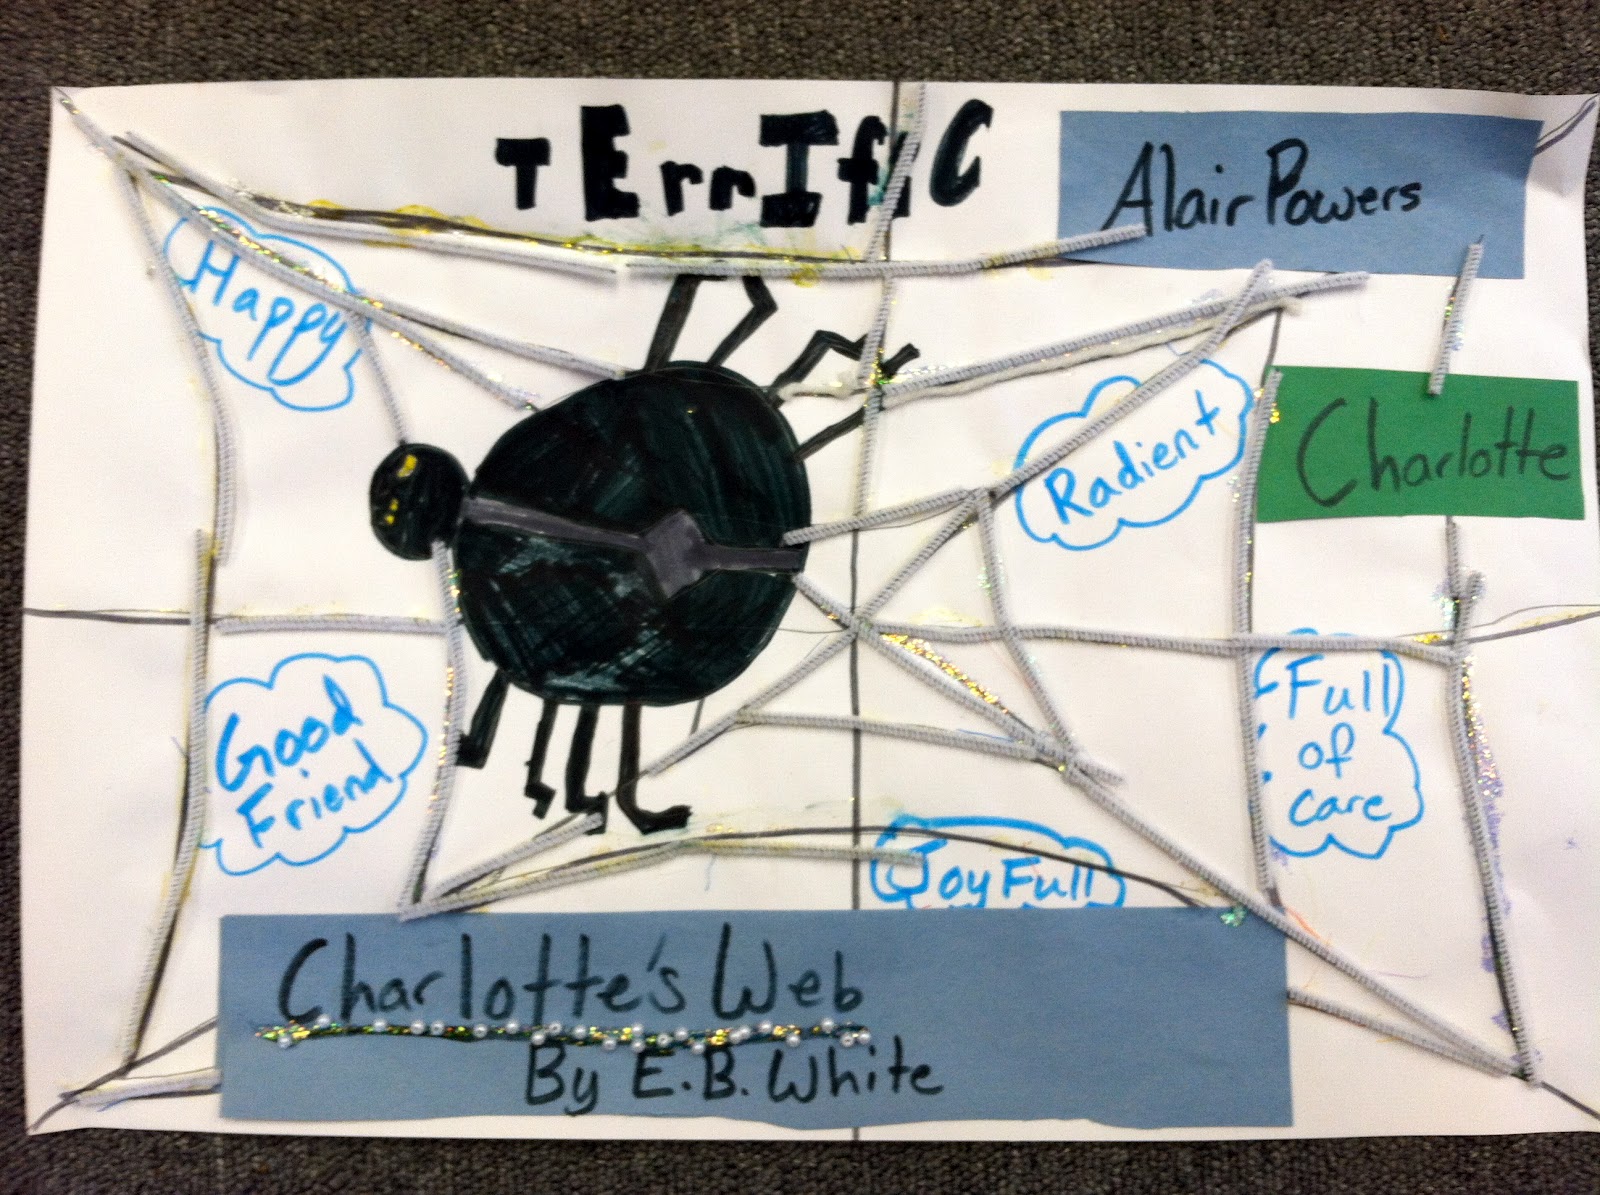 TErrIfiC
Alair Powers
Happy
Radient
Charlotte
Good
Friend
Full
of
care
JoyFull
Charlotte's Web
By E.B. White